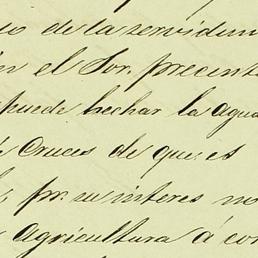 io de la servidum
en el Sor. precint
puede hechar la agua
e Cruces de que es
pr. su interes no
Agricultura á con